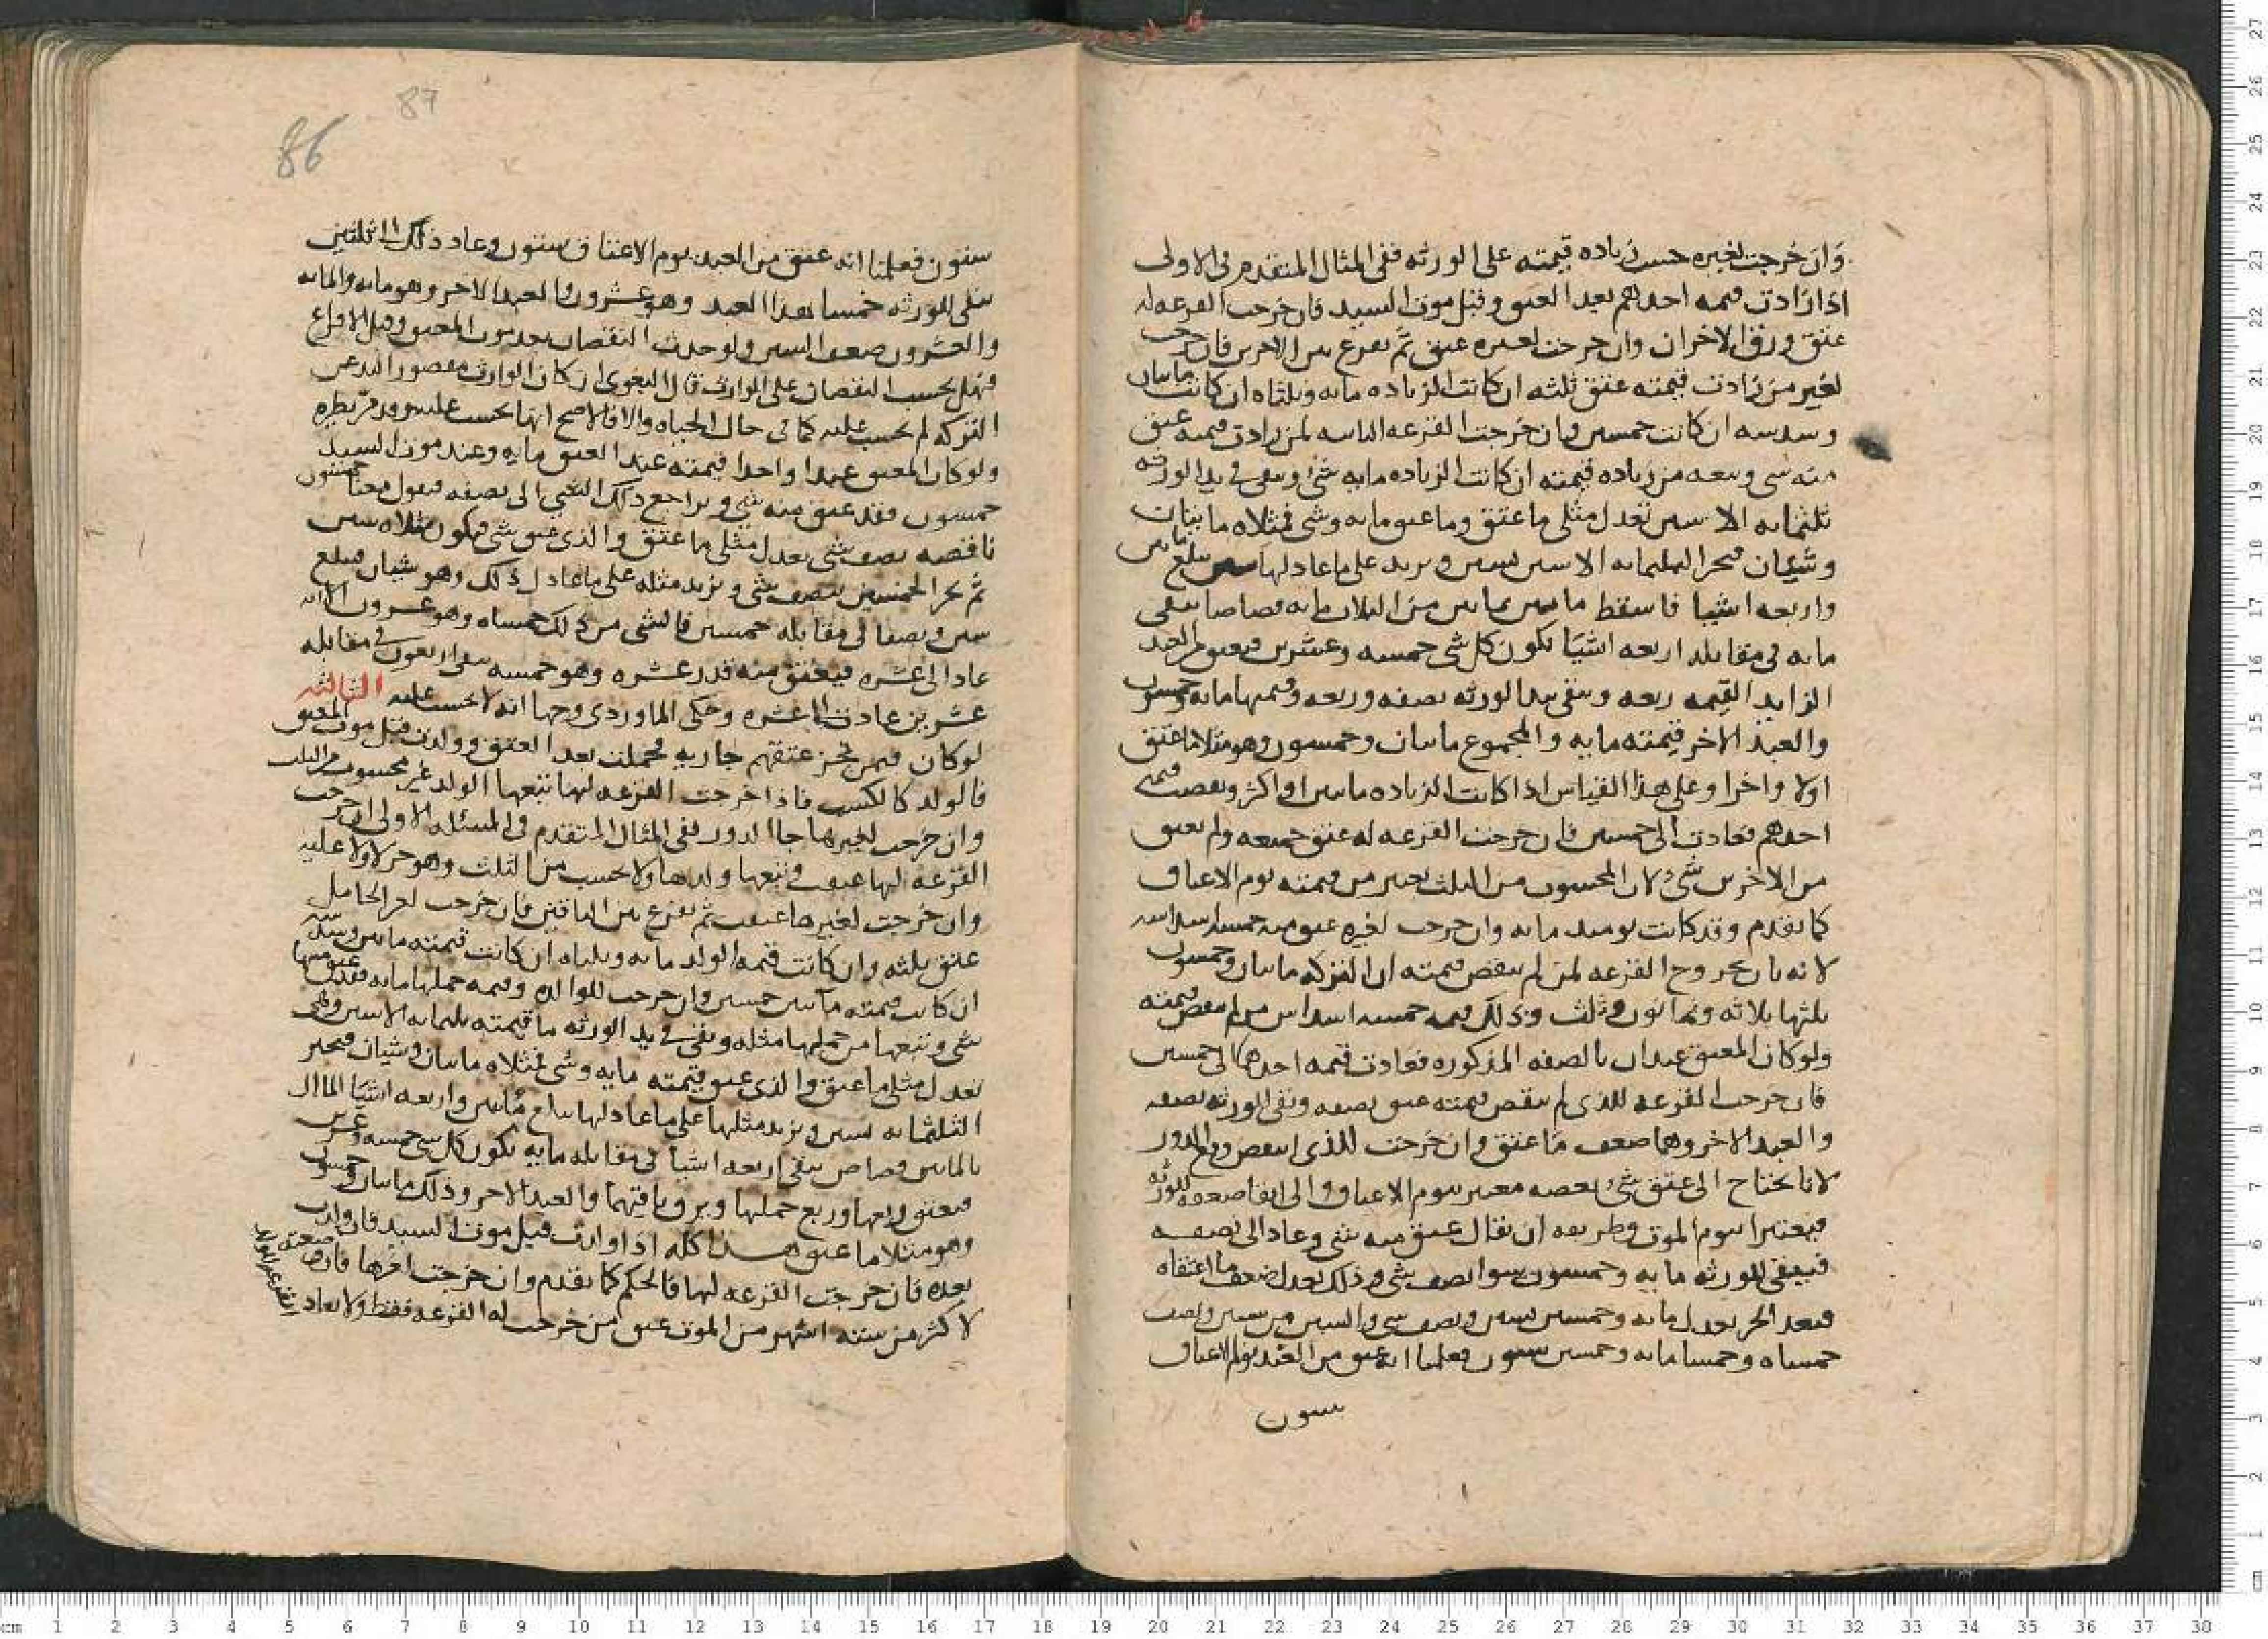 وان خرجت لغيره حسب زياده قيمته على الورثه ففى المثال المتقدم فى الاولى
اذا زادت قيمه احدهم بعد العتق وقبل موت السيد فان خرجت القرعه له
عتق ورق الاخران وان خرجت لغيره عتق ثم يقرع بين الاخرين فان خرجت
لغير من زادت قيمته عتق ثلثه ان كانت الزياده مايه وثلثاه ان كانت مايتان
وسدسه ان كانت خمسين وان خرجت القرعه الثانيه لمن زادت قيمته عتق
منه شى وتبعه من زياده قيمته ان كانت الزياده مايه شئ وبقى فى يد الورثه
ثلثمايه الا شيين تعدل مثلى ما عتق وما عتق مايه وشى فمثلاه مايتان
وشيئان فتجبر الثلثمايه الا شيين بشيين ويزيد على ما عادلها شيين تبلغ مايتين
واربعه اشيا فاسقط مايتين بمايتين من الثلاث مايه قصاصا يبقى
مايه فى مقابله اربعه اشيا يكون كل شى خمسه وعشرين فيعتق من العبد
الزايد القيمه ربعه ويبقى بيد الورثه نصفه وربعه وقيمتها مايه وخمسون
والعبد الاخر قيمته مايه والمجموع مايتان وخمسون وهو مثلا ما عتق
اولا واخرا وعلى هذا القياس اذا كانت الزياده مايتين او اكثر ونقصت قيمه
احدهم فعادت الى خمسين فان خرجت القرعه له عتق جميعه ولم يعتق
من الاخرين شئ لان المحسوب من الثلث يعتبر من قيمته يوم الاعتاق
كما تقدم وقد كانت يوميذ مايه وان خرجت لغيره عتق منه خمسه اسداسه
لانه بان بخروج القرعه لمن لم ينقص قيمته ان التركه مايتان وخمسون
ثلثها ثلاثه وثمانون وثلث وذلك قيمه خمسه اسداس من لم ينقص قيمته
ولو كان المعتق عبدان بالصفه المذكوره فعادت قيمه احدهما الى خمسين
فان خرجت القرعه للذى لم ينقص قيمته عتق نصفه وبقى للورثه نصفه
والعبد الاخر وهما ضعف ما عتق وان خرجت للذى انتقص وقع الدور
لانا نحتاج الى عتق شئ بعضه معتبر بيوم الاعتاق والى ابقا ضعفه للورثه
فيعتبر بيوم الموت وطريقه ان يقال عتق منه شى وعاد الى نصفه
فيبقى للورثه مايه وخمسون سوا نصف شى وذلك يعدل ضعف ما اعتقاه
فبعد الجبر يعدل مايه وخمسين شيين ونصف شى والشيين من شيين ونصف
خمساه وخمسا مايه وخمسين ستون فعلمنا انه عتق من العبد يوم الاعتاق
ستون
87
86
ستون فعلمنا انه عتق من العبد يوم الاعتاق ستون وعاد ذلك الى ثلثين
بقى للورثه خمسا هذا العبد وهو عشرون والعبد الاخر وهو مايه والمايه
والعشرون ضعف الستين ولو حدث النقصان بعد موت المعتق وقبل الاقراع
فهل يحسب النقصان على الوارث قال البغوى ان كان الوارث مقصور اليد عن
التركه لم يحسب عليه كما فى حال الحياه والا فالاصح انها يحسب عليه وقد مر نظيره
ولو كان المعتق عبدا واحدا قيمته عند العتق مايه وعند موت السيد
خمسون فقد عتق منه شى وتراجع ذلك الشى الى نصفه فنقول معنا خمسون
ناقصه نصف شى يعدل مثلى ما عتق والذى عتق شى فيكون مثلاه شيين
ثم نجبر الخمسين بنصف شى ونزيد مثله على ما عادل ذلك وهو شيان فتبلغ
شيين ونصفا فى مقابله خمسين فالشى من ذلك خمساه وهو عشرون الا انه
عاد الى عشره فيعتق منه قدر عشره وهو خمسه يبقى اربعون فى مقابله
عشرين عادت الى عشره وحكى الماوردى وجها انه لا يحسب عليه الثالثه
لو كان فيمن نجز عتقهم جاريه فحملت بعد العتق وولدت قبل موت المعتق
فالولد كالكسب فاذا خرجت القرعه لها تبعها الولد غير محسوب من الثلث
وان خرجت لغيرها جا الدور ففى المثال المتقدم فى المسئله الاولى ان خرجت
القرعه لها عتقت وتبعها ولدها ولا يحسب من الثلث وهو حر لا ولا عليه
وان خرجت لغيرها عتقت ثم يقرع بين الباقين فان خرجت لغير الحامل
عتق ثلثه وان كانت قيمه الولد مايه وثلثاه ان كانت قيمته مايتين وسدسه
ان كانت قيمته مايتين خمسين وان خرجت للوالده وقيمه حملها مايه فقد عتق منها
شى وتبعها من حملها مثله وبقى فى يد الورثه ما قيمته ثلثمايه الا شيين وهى
تعدل مثلى ما عتق والذى عتق قيمته مايه وشى فمثلاه مايتان وشيان فتجبر
الثلثمايه بشيين ونزيد مثلها على ما عادلها تبلغ مايتين واربعه اشيا المال
بالمايتين قصاص يبقى اربعه اشيا فى مقابله مايه يكون كل شى خمسه وعشرين
فيعتق ربعها وربع حملها ويرق باقيهما والعبد الاخر وذلك مايتان وخمسون
وهو مثلا ما عتق هذا كله اذا ولدت قبل موت السيد فان ولدت
بعده فان خرجت القرعه لها فالحكم كما تقدم وان خرجت لغيرها فان وضعته
لاكثر من سته اشهر من الموت عتق من خرجت له القرعه فقط ولا تعاد